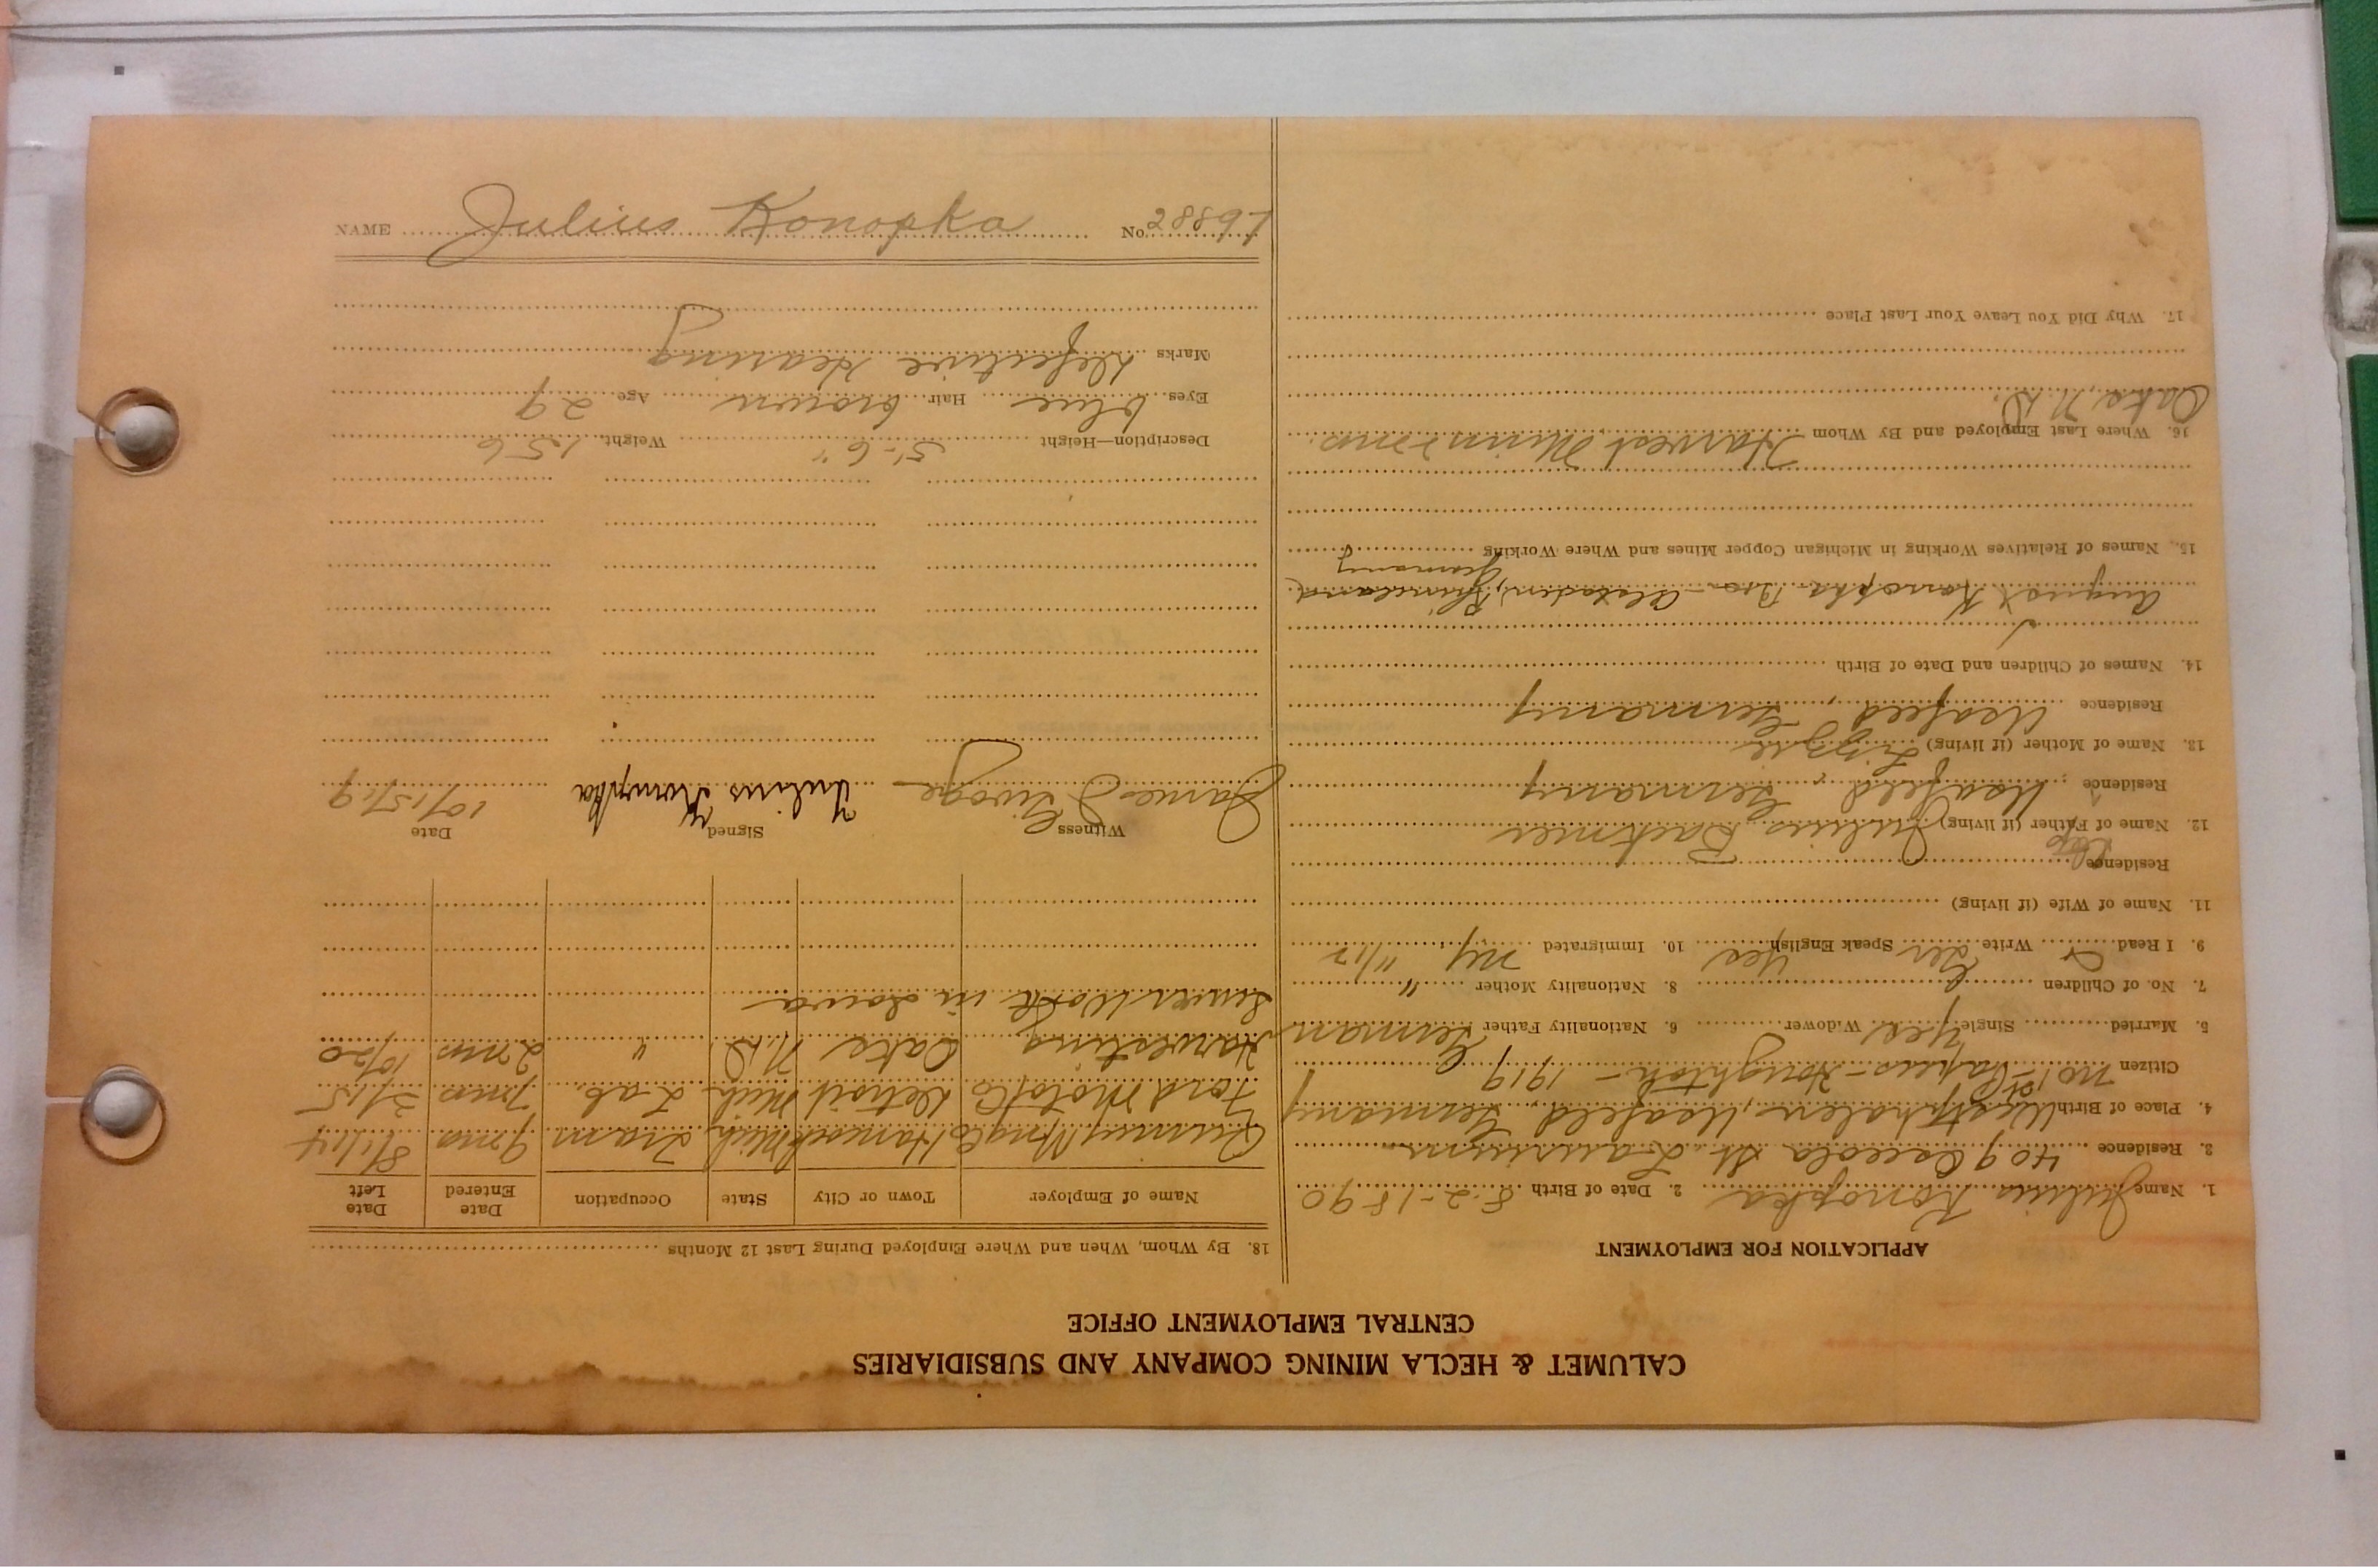 CALUMET & HECLA MINING COMPANY AND SUBSIDIARIES
CENTRAL EMPLOYMENT OFFICE
APPLICATION FOR EMPLOYMENT
1. Name Julius Konopka 2. Date of Birth 8-2-1890
3. Residence 409 Osceola St. Laurium
4. Place of Birth Westphalen, Germany
Citizen no 1st Papers - Houghton - 1919
5. Married Single yes Widower 6. Nationality Father German
7. No. of Children 8. Nationality Mother "
9. I Read Write Ger Speak English yes 10. Immigrated 11/12
11. Name of Wife (if living)
Residence
Step
12. Name of Father (if living) Julius
Residence Germany
13. Name of Mother (if living) Lizzie
Residence Germany
14. Names of Children and Date of Birth
August Konopka Bro - Germany
15. Names of Relatives Working in Michigan Copper Mines and Where Working
16. Where Last Employed and By Whom Harvest
Oake, N.D.
17. Why Did You Leave Your Last Place
18. By Whom, When and Where Employed During Last 12 Months
Name of Employer Town or City State Occupation Date Entered Date Left
Quincy Mng Co Hancock Mich Tram 9 mos 8/1/14
Ford Motor Co Detroit Mich Lab. 7 mos 3/15
Harvesting Oake N.D. " 2 mos 10/20
Sewer Work in Iowa
Witness Signed Date
James Julius Konopka 10/15/19
Description—Height 5'-6" Weight 156
Eyes blue Hair brown Age 29
Marks Defective Hearing
NAME Julius Konopka No. 28897